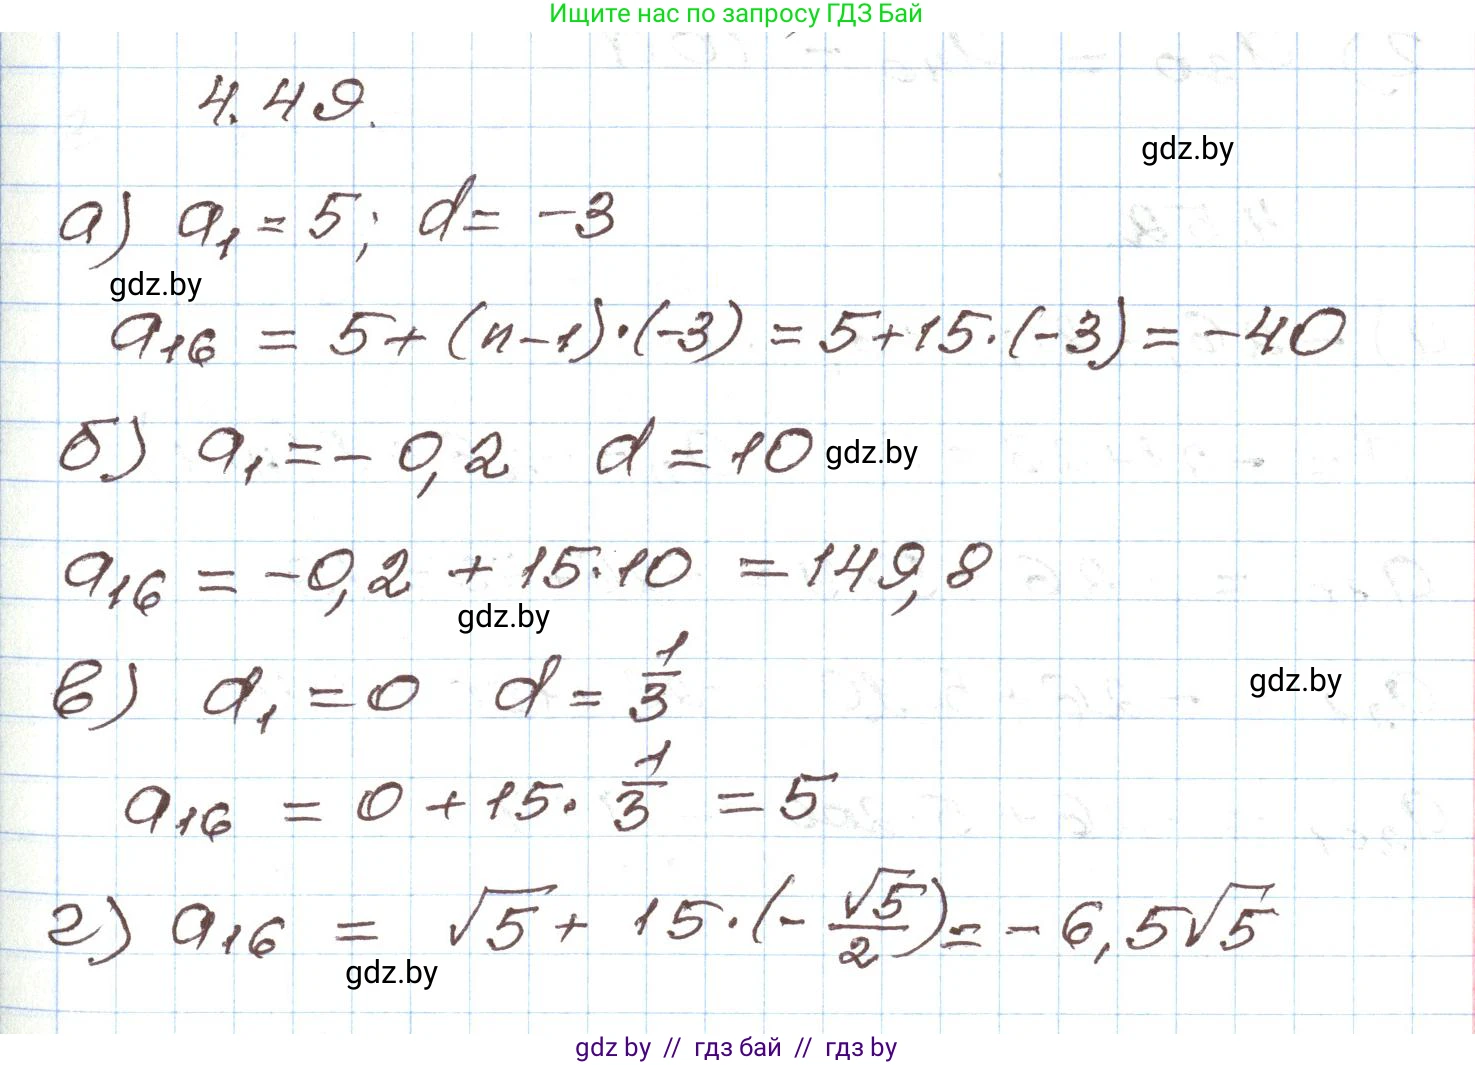 Ищите нас по запросу ГДЗ Бай
4.49.
gdz.by
а) a₁ = 5; d = -3
gdz.by
a₁₆ = 5 + (n-1)·(-3) = 5+15·(-3) = -40
б) a₁ = -0,2 d = 10 gdz.by
a₁₆ = -0,2 + 15·10 = 149,8
gdz.by
в) a₁ = 0 d = 1/3
gdz.by
a₁₆ = 0 + 15 · 1/3 = 5
г) a₁₆ = √5 + 15·(-√5/2) = -6,5√5
gdz.by
gdz by // гдз бай // гдз by